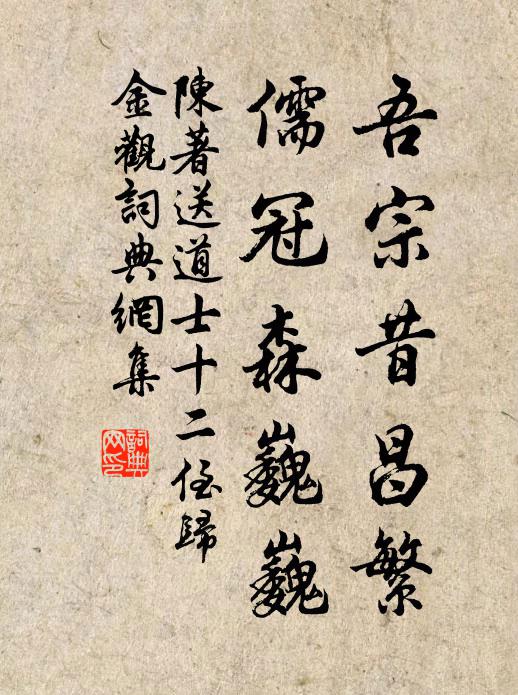 吾宗昔昌繁
儒冠森巍巍
陳著送道士十二侄歸
金觀詞典網集
詞典網印